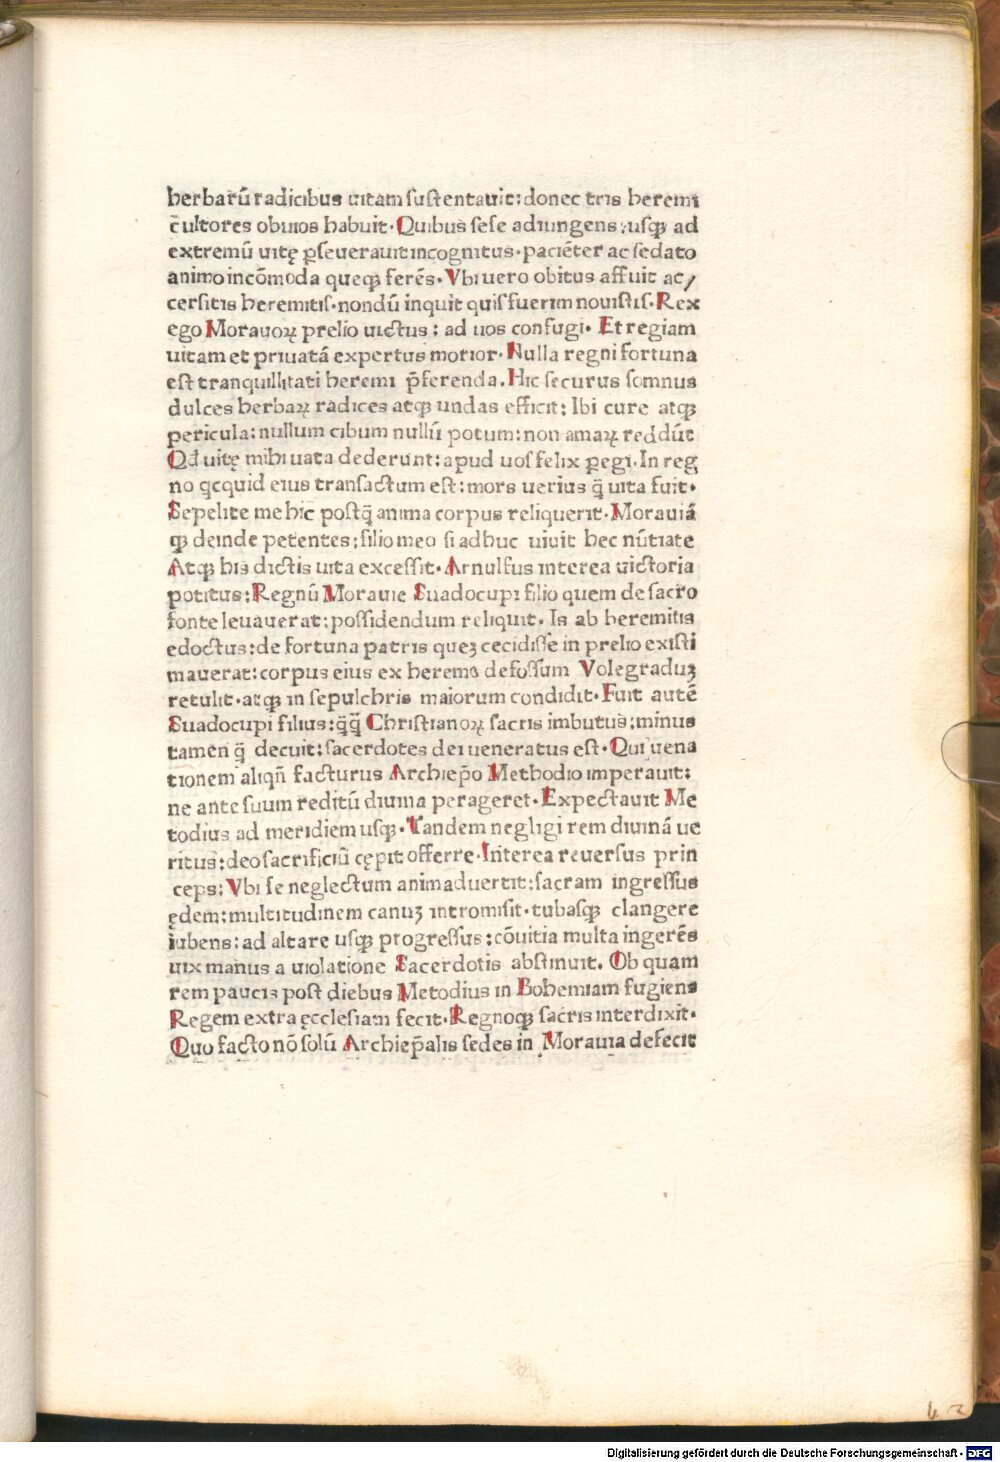 herbarū radicibus uitam ſuſtentauit: donec tris heremi
cultores obuios habuit. Quibus ſeſe adiungens: uſqꝫ ad
extremū uitę ꝑſeuerauit incognitus. paciēter ac ſedato
animo incōmoda queqꝫ ferēs. Vbi uero obitus affuit ac/
cerſitis heremitiſ. nondū inquit quiſ fuerim nouiſtiſ. Rex
ego Morauoꝝ prelio uictus: ad uos confugi. Et regiam
uitam et priuatā expertus morior. Nulla regni fortuna
eſt tranquillitati heremi p̄ferenda. Hic ſecurus ſomnus
dulces herbaꝝ radices atqꝫ undas efficit: Ibi cure atqꝫ
pericula: nullum cibum nullū potum: non amaꝝ reddūt
Qd uitę mihi uata dederunt: apud uoſ felix ꝑegi. In reg
no qcquid eius tranſactum eſt: mors uerius q̄ uita fuit.
Sepelite me hic poſtq̄ anima corpus reliquerit. Morauiā
qꝫ deinde petentes: filio meo ſi adhuc uiuit hec nūtiate
Atqꝫ his dictis uita exceſſit. Arnulfus interea uictoria
potitus: Regnū Morauie Suadocupi filio quem de ſacro
fonte leuauerat: poſſidendum reliquit. Is ab heremitis
edoctus: de fortuna patris queꝫ cecidiſſe in prelio exiſti
mauerat: corpus eius ex heremo defoſſum Volegraduꝫ
retulit. atqꝫ in ſepulchris maiorum condidit. Fuit autē
Suadocupi filius: q̄q̄ Chriſtianoꝝ ſacris imbutus: minus
tamen q̄ decuit: ſacerdotes dei ueneratus eſt. Qui uena
tionem aliqn̄ facturus Archiep̄o Methodio imperauit:
ne ante ſuum reditū diuina perageret. Expectauit Me
todius ad meridiem uſqꝫ. Tandem negligi rem diuinā ue
ritus: deo ſacrificiū cępit offerre. Interea reuerſus prin
ceps: Vbi ſe neglectum animaduertit: ſacram ingreſſus
ędem: multitudinem canuꝫ intromiſit. tubaſqꝫ clangere
iubens: ad altare uſqꝫ progreſſus: cōuitia multa ingerēs
uix manus a uiolatione Sacerdotis abſtinuit. Ob quam
rem paucis poſt diebus Metodius in Bohemiam fugiens
Regem extra ęccleſiam fecit. Regnoqꝫ ſacris interdixit.
Quo facto nō ſolū Archiep̄alis ſedes in Morauia defecit
Digitalisierung gefördert durch die Deutsche Forschungsgemeinschaft - DFG